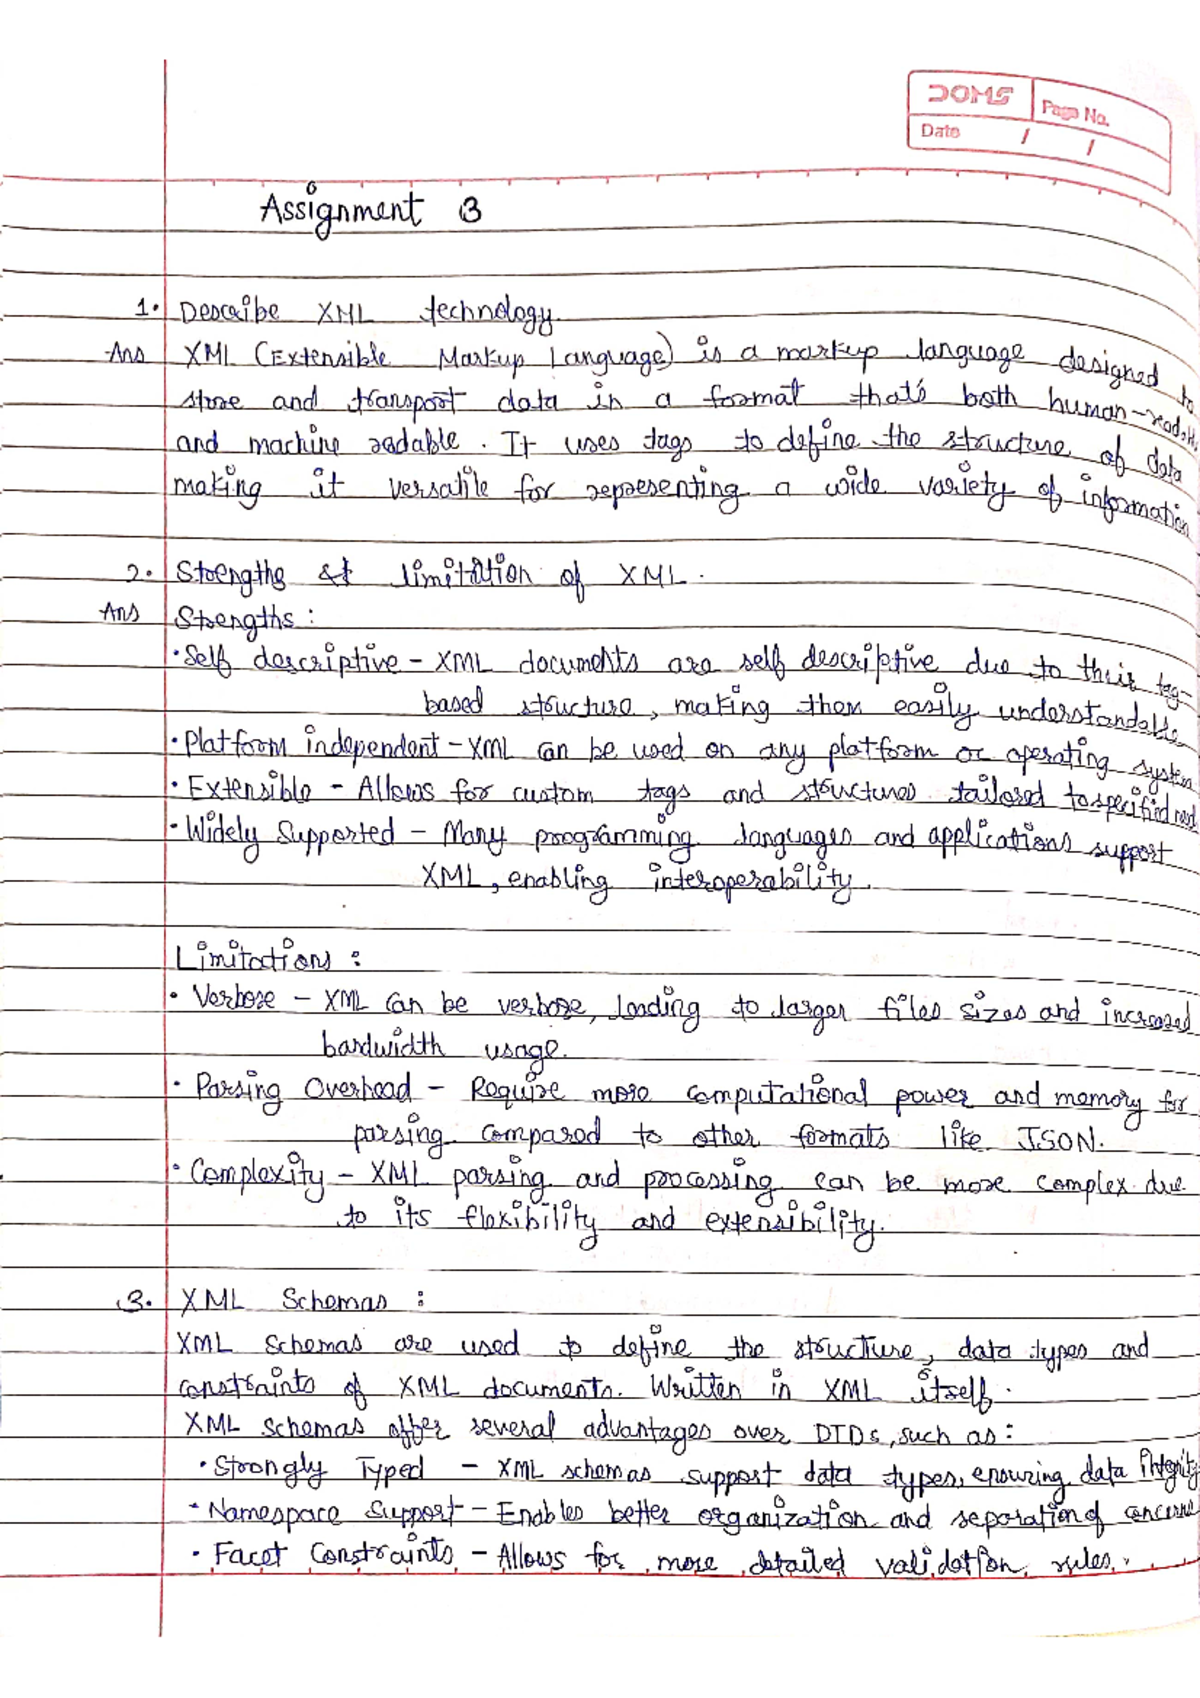 DOMS
Page No.
Date / /
Assignment 3
1. Describe XML technology.
Ans XML (Extensible Markup Language) is a markup language designed to
store and transport data in a format that's both human-readable
and machine readable. It uses tags to define the structure of data
making it versatile for representing a wide variety of information
2. Strengths & limitation of XML.
Ans Strengths :
• Self descriptive - XML documents are self descriptive due to their tag-
based structure, making them easily understandable
• Platform independent - XML can be used on any platform or operating system
• Extensible - Allows for custom tags and structures tailored to specified need
• Widely Supported - Many programming languages and applications support
XML, enabling interoperability.
Limitations :
• Verbose - XML can be verbose, leading to larger files sizes and increased
bandwidth usage.
• Parsing Overhead - Require more computational power and memory for
parsing compared to other formats like JSON.
• Complexity - XML parsing and processing can be more complex due
to its flexibility and extensibility.
3. XML Schemas :
XML Schemas are used to define the structure, data types and
constraints of XML documents. Written in XML itself.
XML schemas offer several advantages over DTDs, such as :
• Strongly Typed - XML schemas support data types, ensuring data integrity
• Namespace Support - Enables better organization and separation of concerns
• Facet Constraints - Allows for more detailed validation rules.